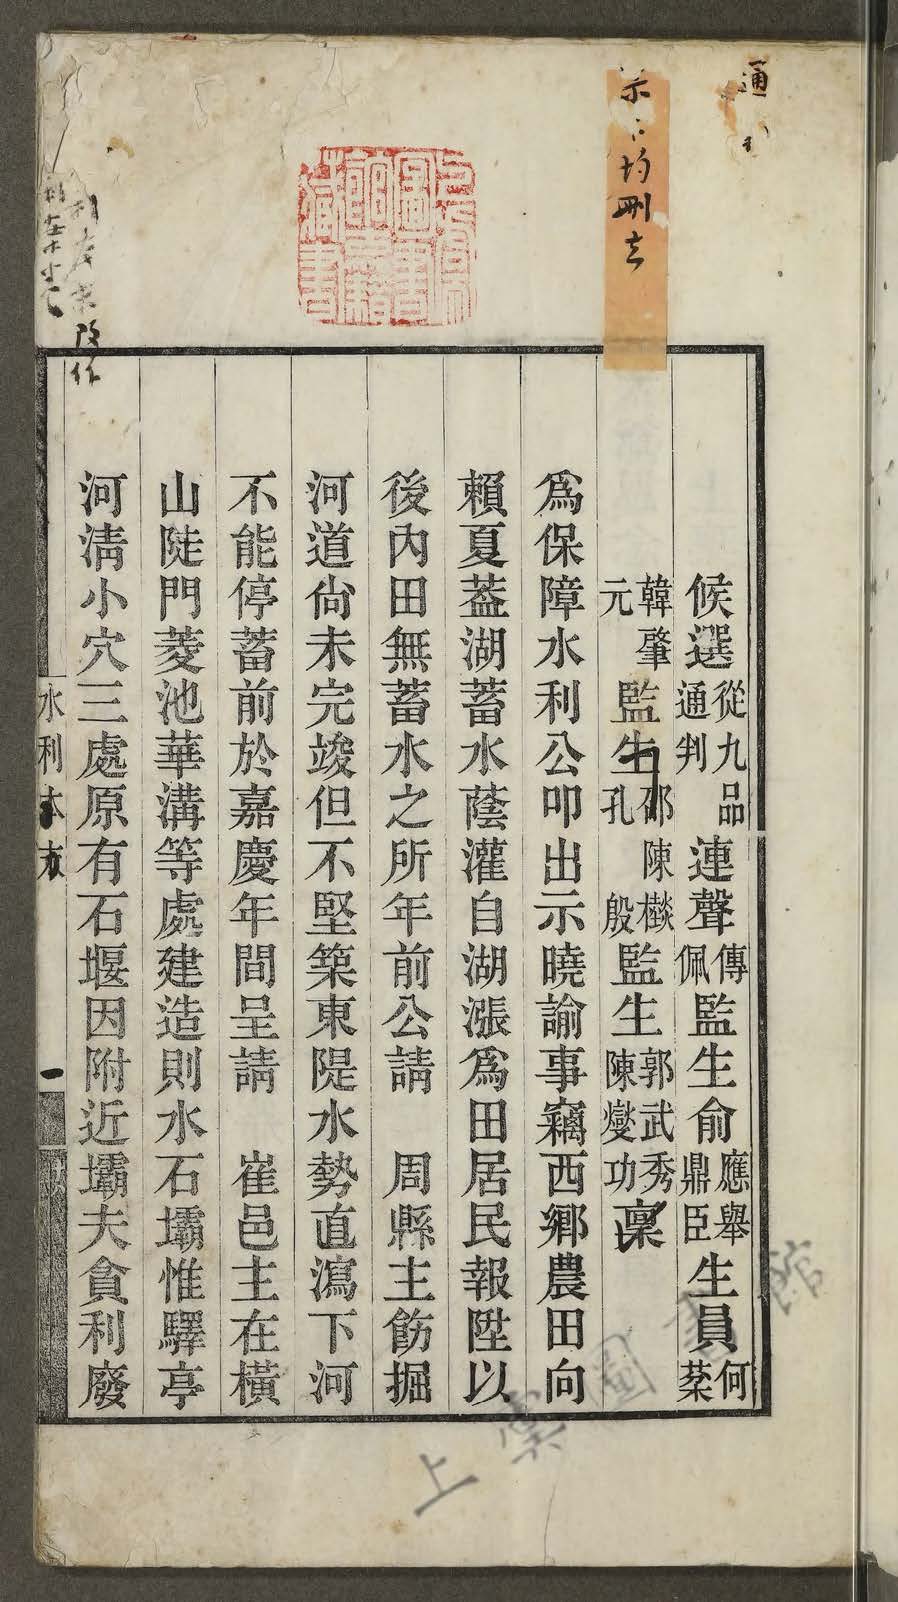 候選從九品通判連聲傳佩監生俞應舉鼎臣生員何棻
韓肇元監生邵孔陳櫾殷監生郭武秀陳燮功稟
為保障水利公叩出示曉諭事竊西鄉農田向
賴夏蓋湖蓄水蔭灌自湖漲為田居民報陞以
後內田無蓄水之所年前公請　周縣主飭掘
河道尙未完竣但不堅築東隄水勢直瀉下河
不能停蓄前於嘉慶年間呈請　崔邑主在橫
山陡門菱池華溝等處建造則水石壩惟驛亭
河淸小穴三處原有石堰因附近壩夫貪利廢
水利本末
一
均刪去
改作
通
上虞圖書館